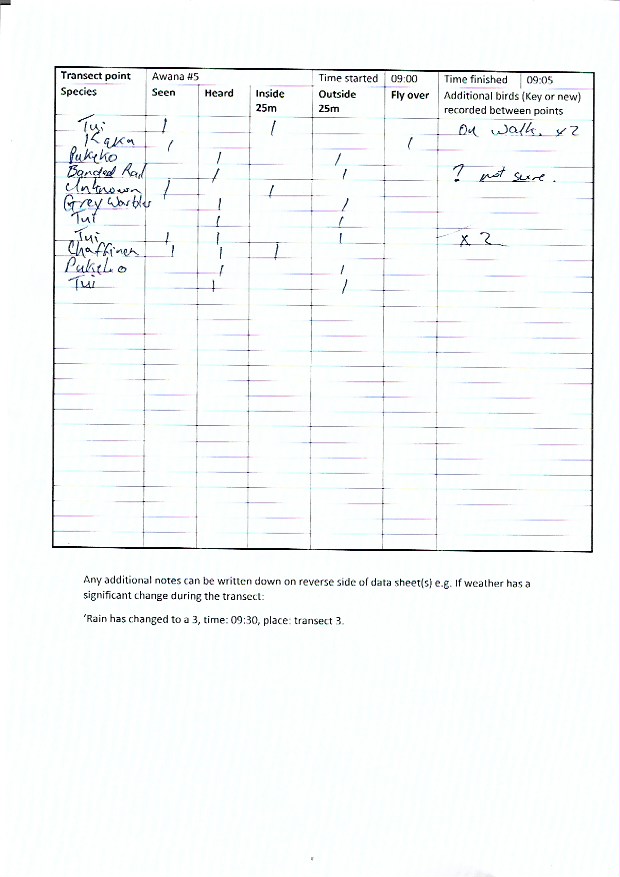 Transect point Awana #5 Time started 09:00 Time finished 09:05
Species Seen Heard Inside 25m Outside 25m Fly over Additional birds (Key or new) recorded between points
Tui / / On walk. x2
Kaka / /
Pukeko / /
Banded Rail / / ? not sure.
Unknown / /
Grey Warbler / /
Tui / /
Tui / / / x 2
Chaffinch / / /
Pukeko / /
Tui / /
Any additional notes can be written down on reverse side of data sheet(s) e.g. If weather has a
significant change during the transect:
'Rain has changed to a 3, time: 09:30, place: transect 3.